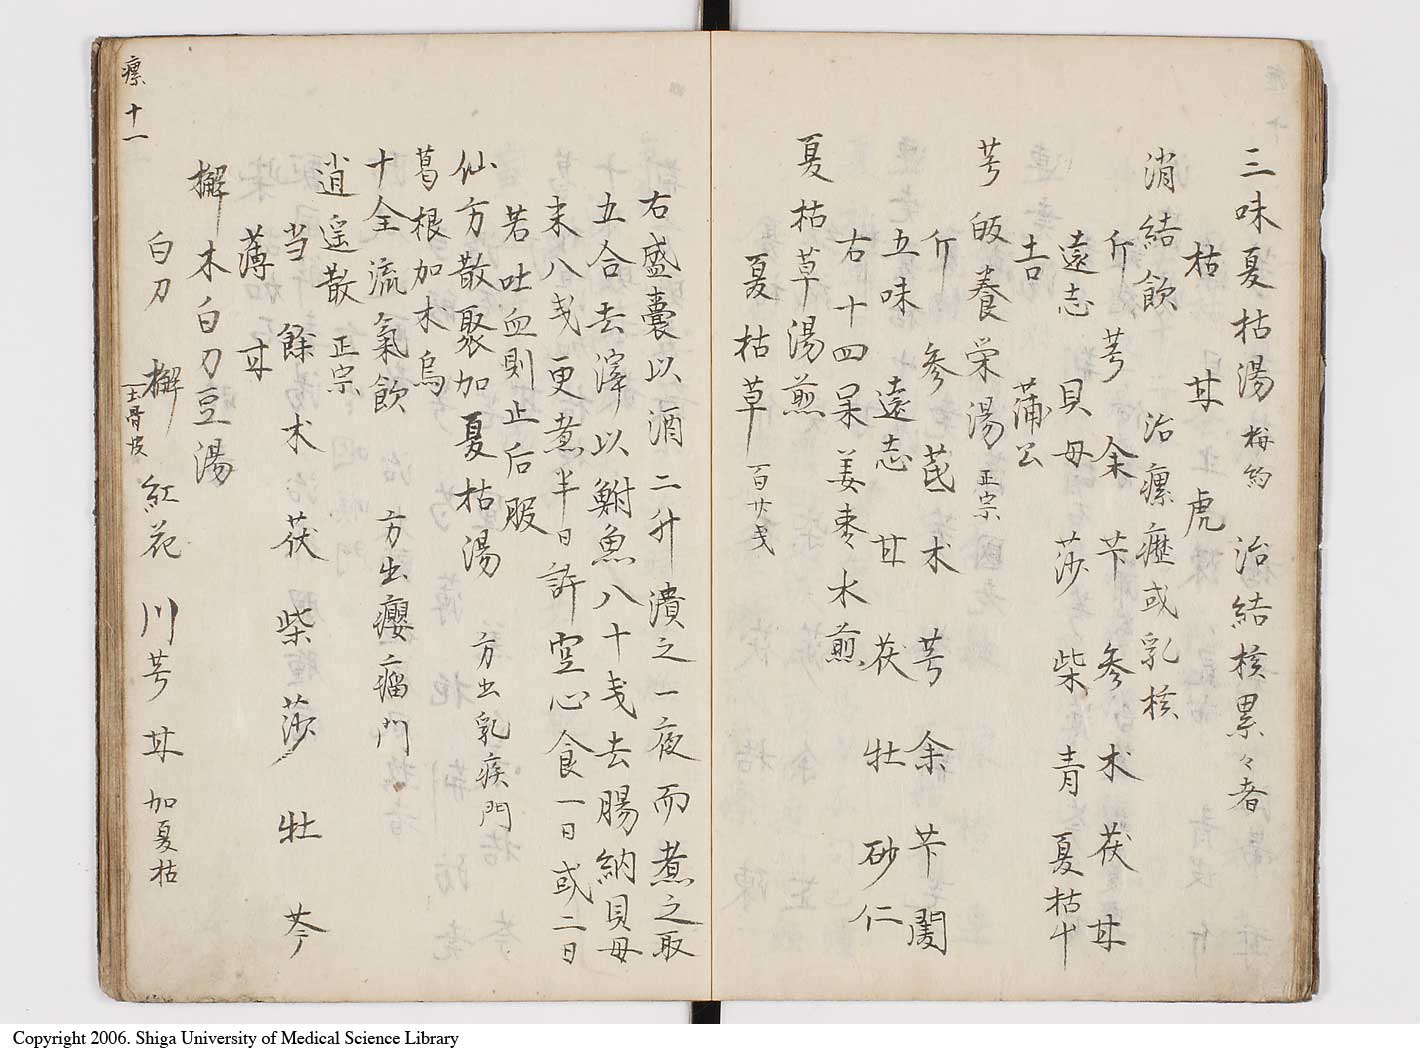 三味夏枯湯 梅約 治結核累々者
枯 甘 虎
消結飲 治瘰癧或乳核
斤 芎 余 芐 参 木 茯 甘
遠志 貝母 莎 柴 青 夏枯中
吉 蒲公
芎皈養栄湯 正宗
斤 参 芪 木 芎 余 芐 闌
五味 遠志 甘 茯 牡 砂仁
右十四味姜枣水煎
夏枯草湯煎
夏枯草 百廿戋
右盛嚢以酒二升漬之一夜而煮之取
五合去滓以鮒魚八十戋去腸納貝母
末八戋更煮半日許空心食一日或二日
若吐血則止后服
仙方散聚加夏枯湯 方出乳疾門
葛根加木烏
十全流氣飲 方出癭瘤門
逍遥散 正宗
当 餘 木 茯 柴 莎 牡 芩
薄 甘
樕木白刀豆湯
白刀 樕 土骨皮 紅花 川芎 甘 加夏枯
瘰 十一
Copyright 2006. Shiga University of Medical Science Library